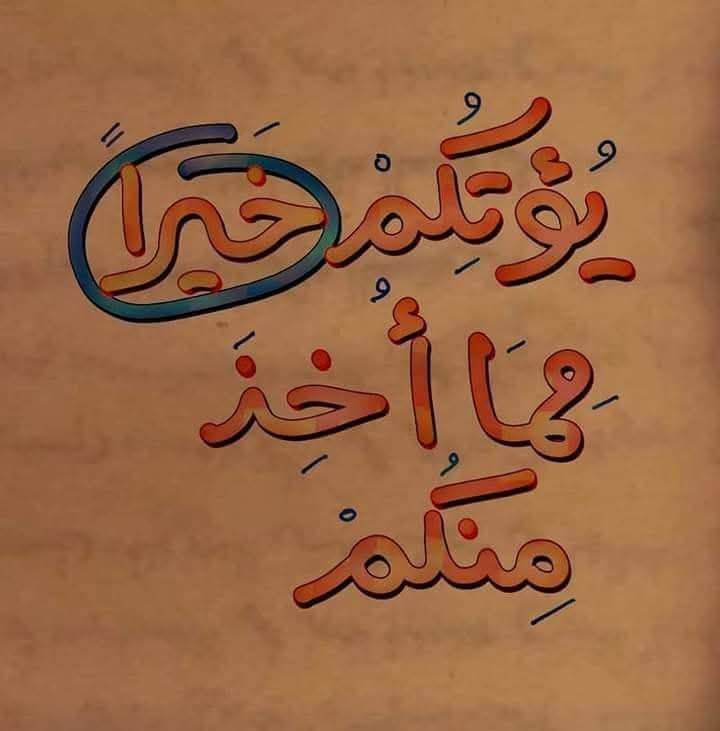 يُؤْتِكُمْ خَيْرًا
مِمَّا أُخِذَ
مِنكُمْ